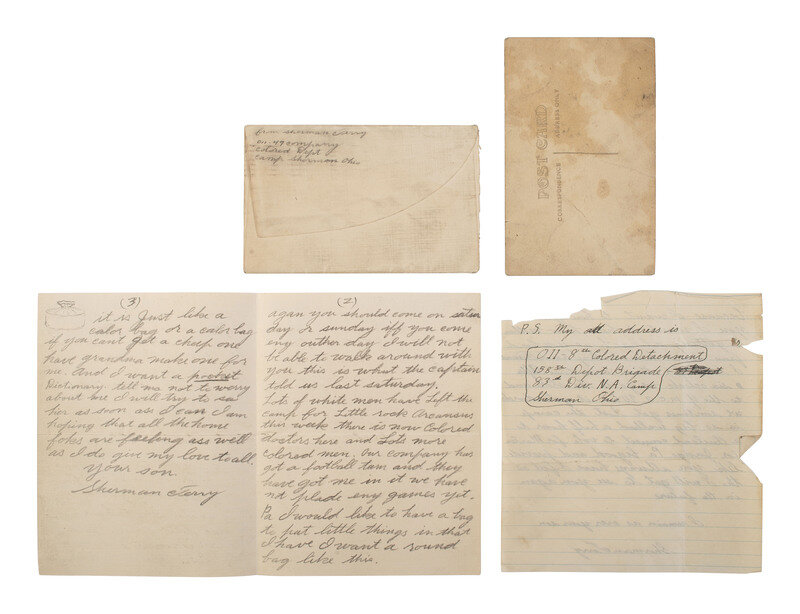 from Sherman Terry
Oll-49 company
Colored Dept
Camp Sherman Ohio
POST CARD
CORRESPONDENCE
ADDRESS ONLY
(3)
it is Just like a
calor bag or a calor bag
if you cant get a cheap one
have grandma make one for
me. And I want a pocket
Dictionary. tell ma not to worry
about me I will try to see
her as soon ass I can I am
hoping that all the home
fokes are feeling ass well
as I do give my love to all.
your son.
Sherman Terry
(2)
agan you should come on satur
day or sunday iff you come
eny outher day I will not
be able to walk around with
you this is what the captain
told us last saturday.
Lots of white men have Left the
camp for Little rock Arcansus
this week there is now Colored
doctors here and Lots more
colored men. Our company has
got a football tum and they
have got me in it we have
not plade eny games yet.
Pa I would like to have a bag
to put little things in that
I have I want a round
bag like this.
P.S. My all address is
Oll-8th Colored Detachment
158th Depot Brigade
83d Div. N.A. Camp
Sherman Ohio